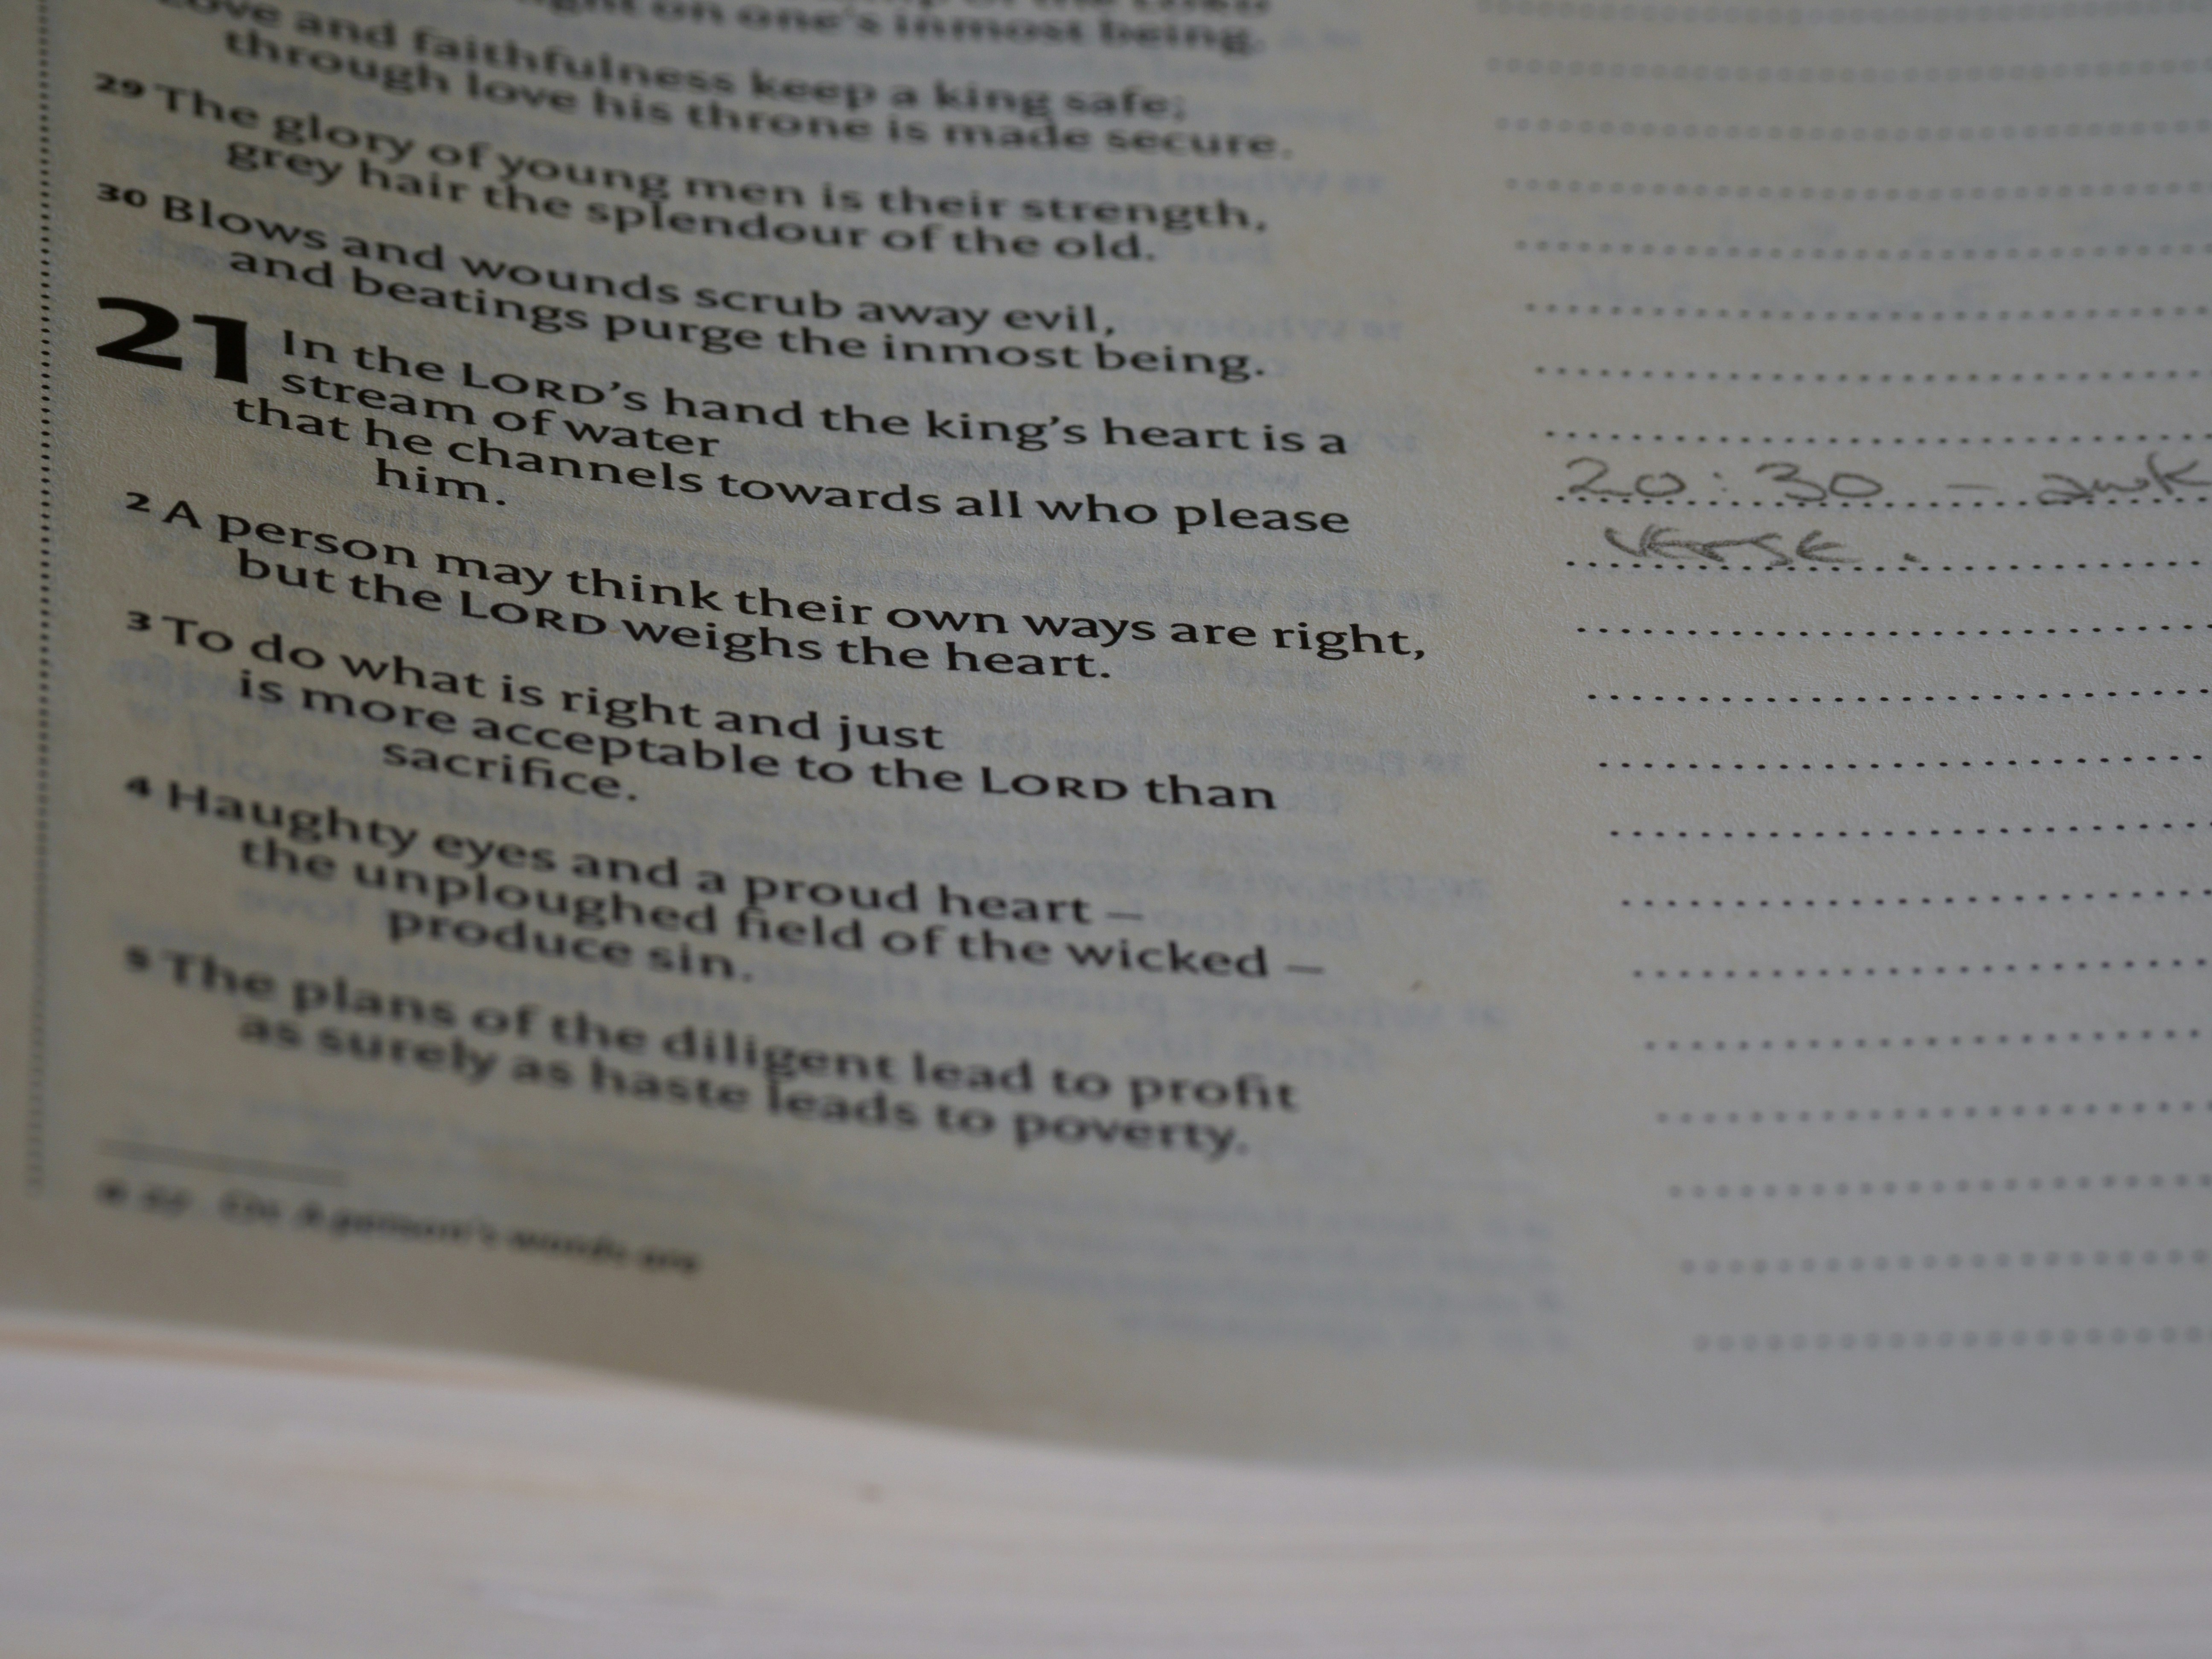 on one's inmost being.
and faithfulness keep a king safe;
through love his throne is made secure.
29 The glory of young men is their strength,
grey hair the splendour of the old.
30 Blows and wounds scrub away evil,
and beatings purge the inmost being.
21 In the LORD's hand the king's heart is a
stream of water
that he channels towards all who please
him.
2 A person may think their own ways are right,
but the LORD weighs the heart.
3 To do what is right and just
is more acceptable to the LORD than
sacrifice.
4 Haughty eyes and a proud heart –
the unploughed field of the wicked –
produce sin.
5 The plans of the diligent lead to profit
as surely as haste leads to poverty.
A person's words are
20:30 – awk
verse.